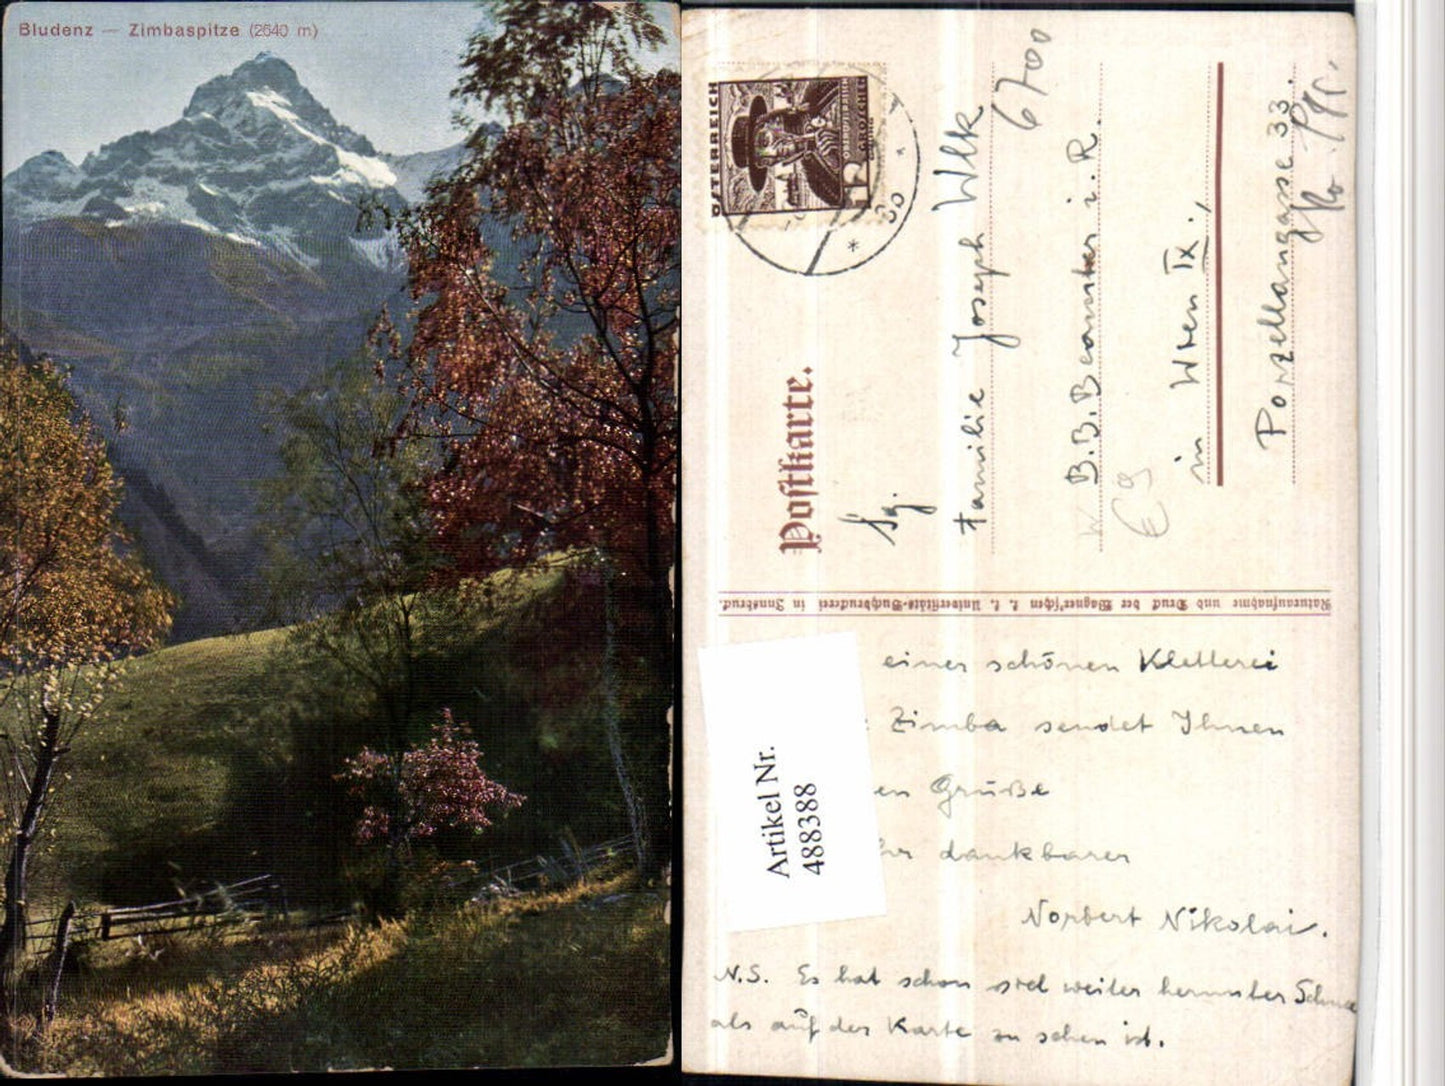 Bludenz — Zimbaspitze (2640 m)
ÖSTERREICH
12
Postkarte.
6700
Familie Joseph Wlk
B.B. Beamter i. R.
in Wien IX.,
Porzellangasse 33.
Naturaufnahme und Druck der Wagner'schen k. k. Universitäts-Buchdruckerei in Innsbruck.
Artikel Nr.
488388
einer schönen Kletterei
Zimba sendet Ihnen
en Grüße
hr dankbarer
Norbert Nikolai.
N.S. Es hat schon viel weiter herunter
als auf der Karte zu sehen ist.